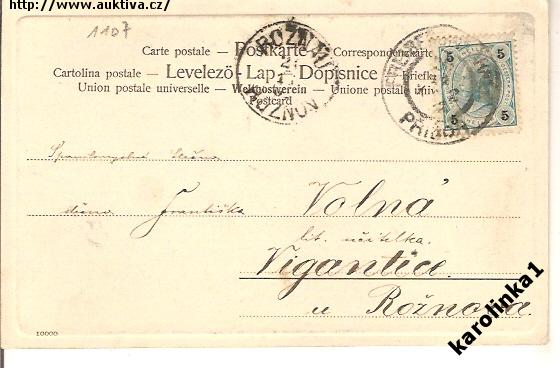 http://www.auktiva.cz/
1107
Carte postale – Postkarte – Correspondenzkarte
Cartolina postale – Levelező-Lap – Dopisnice – Briefka
Union postale universelle – Weltpostverein – Unione postale univ
Postcard
ROŽNAU
ROŽNOV
PŘÍBOR
5 5
5 5
slečna
Františka Volná
lit. učitelka.
Vigantice
u Rožnova
10000
karolinka1